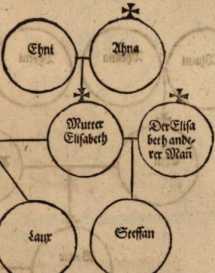 Ehni
Ahna
Mutter
Elisabeth
Der Elisa
beth ande-
rer Mañ
Laux
Steffan